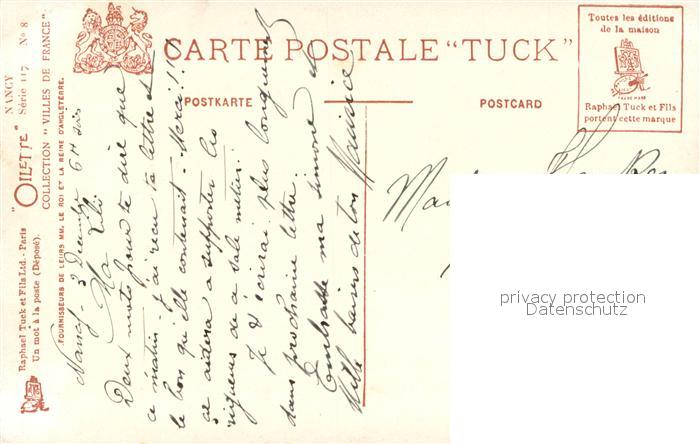 CARTE POSTALE "TUCK"
POSTKARTE
POSTCARD
Toutes les éditions
de la maison
TRADE MARK
Raphael Tuck et Fils
portent cette marque
NANCY
Série 117 N° 8
"OILETTE"
COLLECTION "VILLES DE FRANCE"
FOURNISSEURS DE LEURS MM. LE ROI ET LA REINE D'ANGLETERRE.
Raphael Tuck et Fils Ltd. - Paris
Un mot à la poste (Déposé).
Nancy - 3 Décembre 6H soir
Ma Lili
Deux mots pour te dire que
ce matin j'ai reçu ta lettre et
le bon qu'elle contenait. Merci!!
ça aidera a supporter les
rigueurs de ce sale métier.
Je t'écrirai plus longuement
dans prochaine lettre.
Embrasse ma Simone et
Mille baisers de ton Maurice
privacy protection
Datenschutz